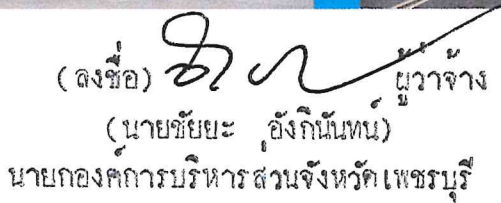 (ลงชื่อ) ผู้ว่าจ้าง
(นายชัยยะ อังกินันทน์)
นายกองค์การบริหารส่วนจังหวัดเพชรบุรี